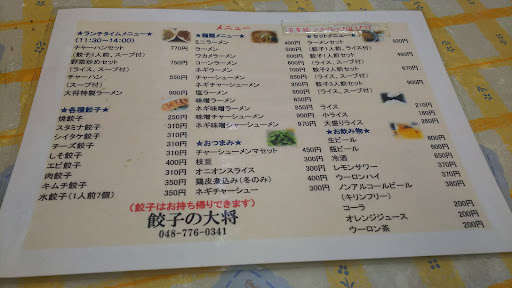 メニュー
★ランチタイムメニュー★
(11:30~14:00)
チャーハンセット 770円
(餃子1人前、スープ付)
野菜炒めセット 750円
(ライス、スープ付)
チャーハン 550円
(スープ付)
大将特製ラーメン 900円
★各種餃子★
焼餃子 250円
スタミナ餃子 310円
シイタケ餃子 310円
チーズ餃子 310円
しそ餃子 310円
エビ餃子 400円
肉餃子 310円
キムチ餃子 350円
水餃子(1人前7個) 310円
★麺類メニュー★
ミニラーメン
ラーメン 400円
ワカメラーメン
コーンラーメン
ネギラーメン
チャーシューメン
ネギチャーシューメン
塩ラーメン
味噌ラーメン 650円
ネギ味噌ラーメン
味噌チャーシューメン
ネギ味噌チャーシューメン 970円
★おつまみ★
チャーシューメンマセット 450円
枝豆 300円
オニオンスライス 300円
鶏皮煮込み(冬のみ) 350円
ネギチャーシュー 300円
★セットメニュー★
ラーメンセット 620円
(餃子1人前、ライス付)
餃子1人前セット 460円
(ライス、スープ付)
餃子2人前セット 670円
(ライス、スープ付)
餃子3人前セット 900円
(ライス、スープ付)
★ライス★
ライス 210円
小ライス 160円
大盛りライス 260円
★お飲み物★
生ビール 600円
瓶ビール 600円
冷酒
レモンサワー
ウーロンハイ
ノンアルコールビール 380円
(キリンフリー)
コーラ 200円
オレンジジュース 200円
ウーロン茶 200円
(餃子はお持ち帰りできます)
餃子の大将
048-776-0341